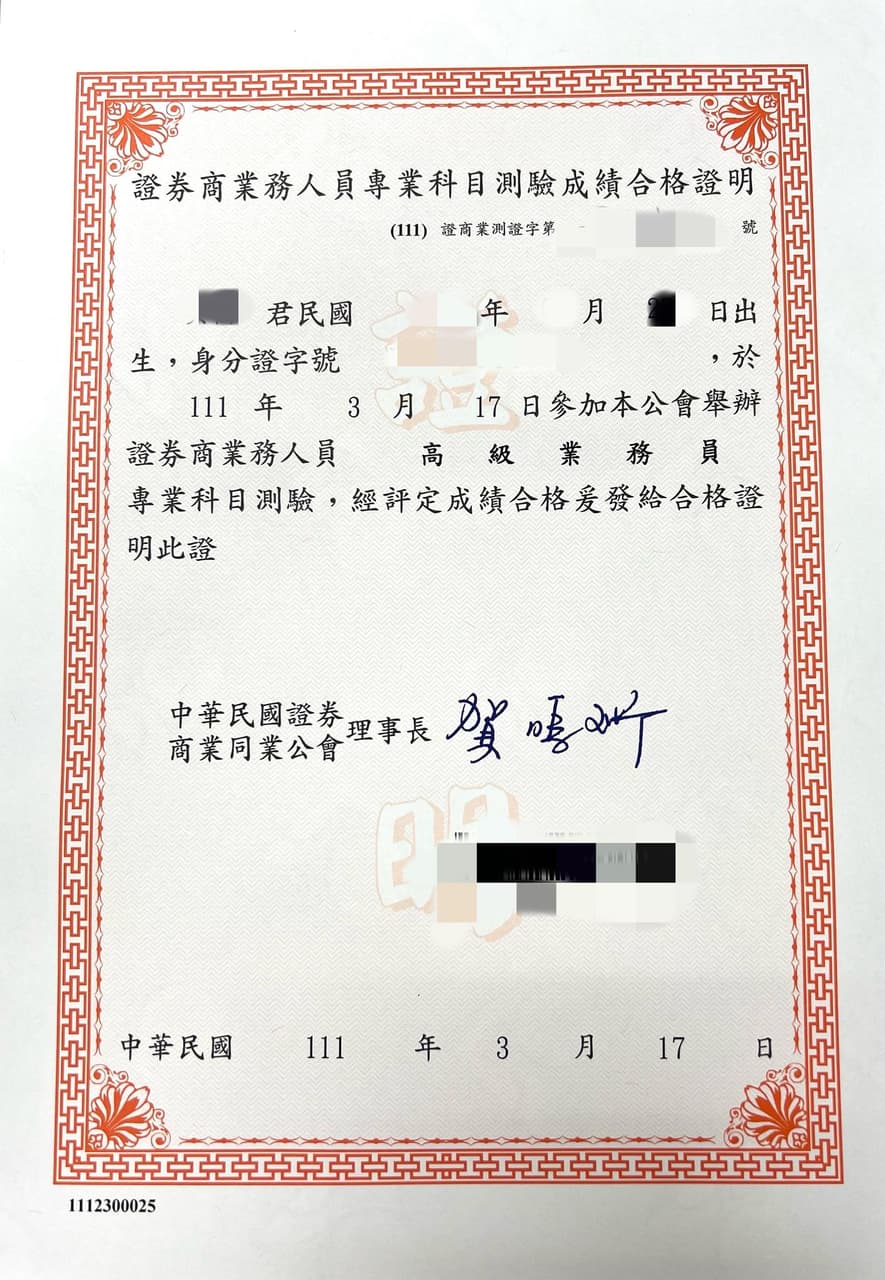 證券商業務人員專業科目測驗成績合格證明
(111) 證商業測證字第 號
君民國 年 月 日出
生，身分證字號 ，於
111 年 3 月 17 日參加本公會舉辦
證券商業務人員 高級業務員
專業科目測驗，經評定成績合格爰發給合格證
明此證
證
中華民國證券
商業同業公會
理事長 賀鳴珩
明
中華民國 111 年 3 月 17 日
1112300025